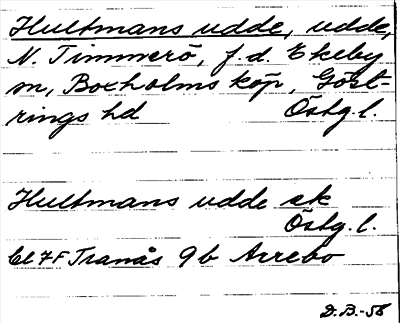 Hultmans udde, udde,
N. Timmerö, f.d. Ekeby
sn, Boxholms köp, Göst-
rings hd Östg.l.
Hultmans udde ek
Östg.l.
Bl 7F Tranås 9b Arrebo
D.B.-56